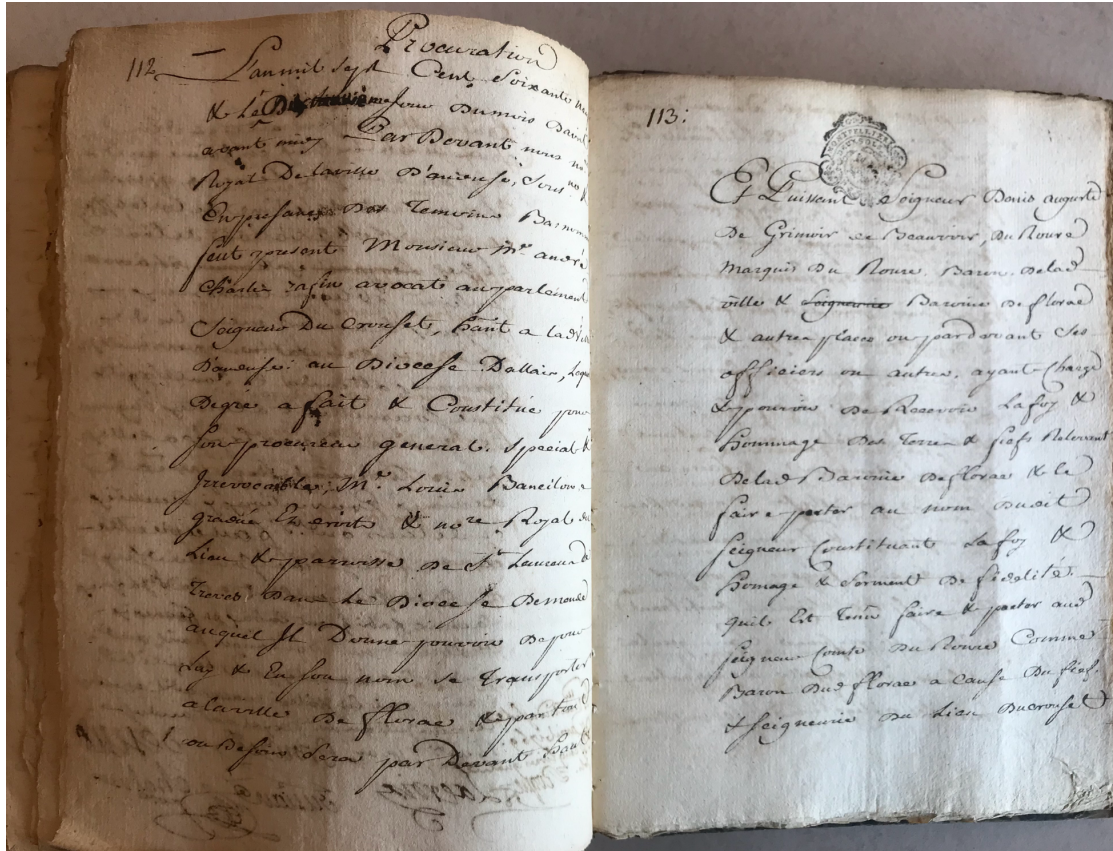 Procuration
112
L'an mil sept Cent Soixante
& le jour Du mois Davril
avant midy Par Devant nous
Royal De la ville D'anduse, Sous
En presance Des Temoins Basnommés
feut present Monsieur Mr. andré
Charles avocat au parlement
Seigneur Du Crouset, hant a lad Ville
D'anduse au Diocese Dallais, Lequel
Degré a fait & Constitué pour
Son procureur general, special &
Irrevocable, Mr. Louis Bancilhon
gradué En droit & nore Royal du
Lieu & parroisse De St Laurens de
Treves Dans Le Diocese Demande
auquel Il Donne pouvoir De pour
Luy & En son nom se Transporter
a la ville De florac & par tout
ou Besoin Sera par Devant haut
113:
Et Puissant Seigneur Denis auguste
De Grimoir de Beauvoir, du Roure
Marquis Du Roure, Baron Delad
ville & Seigneurie Baronie De florac
& autres places ou pardevant Ses
officiers ou autres, ayant Charge
& pouvoir De Recevoir La foy &
hommage Des Terres & fiefs Relevant
Delad Baronie De florac & le
faire preter au nom Dudit
seigneur Constituant La foy &
homage & serment De fidelité
quil Est Tenu faire & preter aud
seigneur Comte Du Roure Comme
Baron Dud florac a Cause Du fief
& seigneurie Du Lieu Ducrouset